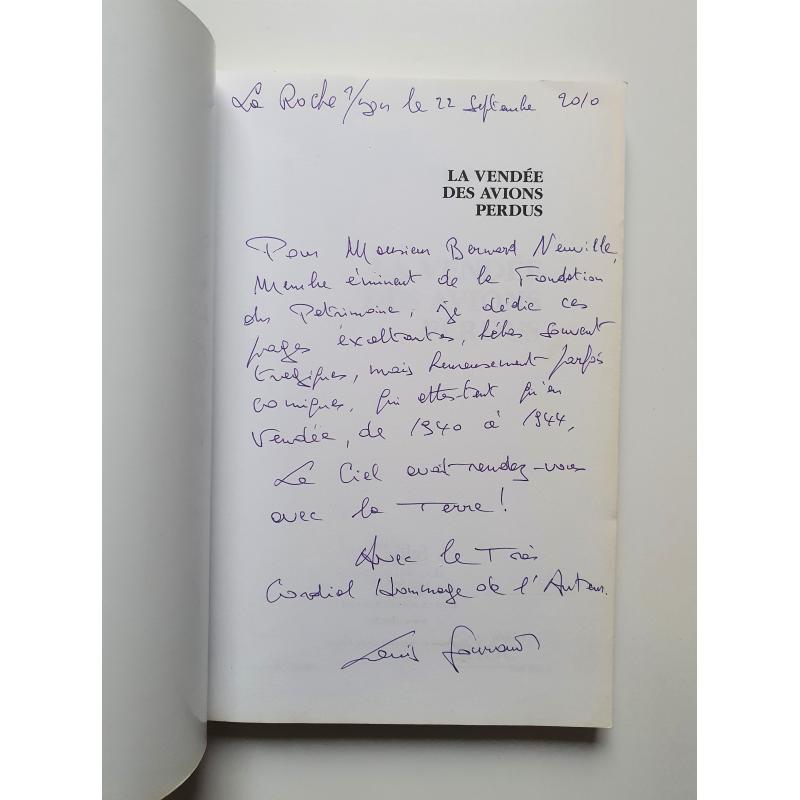 La Roche s/yon le 22 Septembre 2010
LA VENDÉE
DES AVIONS
PERDUS
Pour Monsieur Bernard Neuville,
Membre éminent de la Fondation
du Patrimoine, je dédie ces
pages éxaltantes, hélas souvent
tragiques, mais heureusement parfois
comiques, qui attestent qu'en
Vendée, de 1940 à 1944,
Le Ciel avait rendez-vous
avec la Terre!
Avec le Très
Cordial Hommage de l'Auteur.
Louis Gouraud